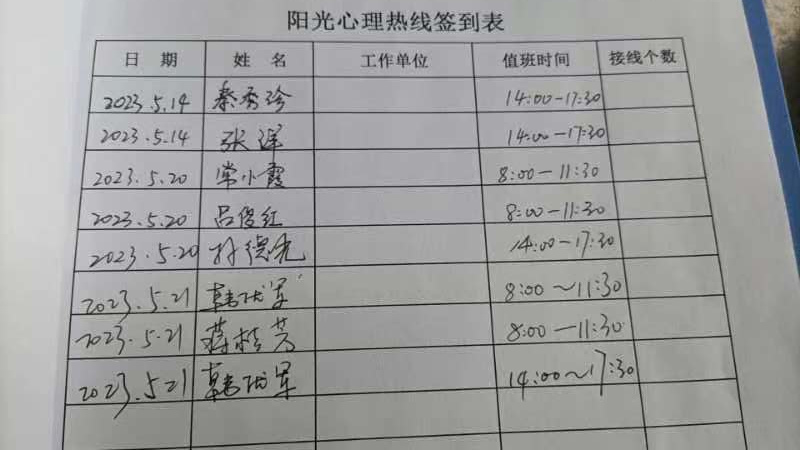 阳光心理热线签到表
日 期 姓 名 工作单位 值班时间 接线个数
2023.5.14 秦秀珍 14:00-17:30
2023.5.14 张 14:00-17:30
2023.5.20 常小霞 8:00-11:30
2023.5.20 吕俊红 8:00-11:30
2023.5.20 孙德先 14:00-17:30
2023.5.21 韩成军 8:00~11:30
2023.5.21 蒋桂芳 8:00-11:30
2023.5.21 韩成军 14:00~17:30